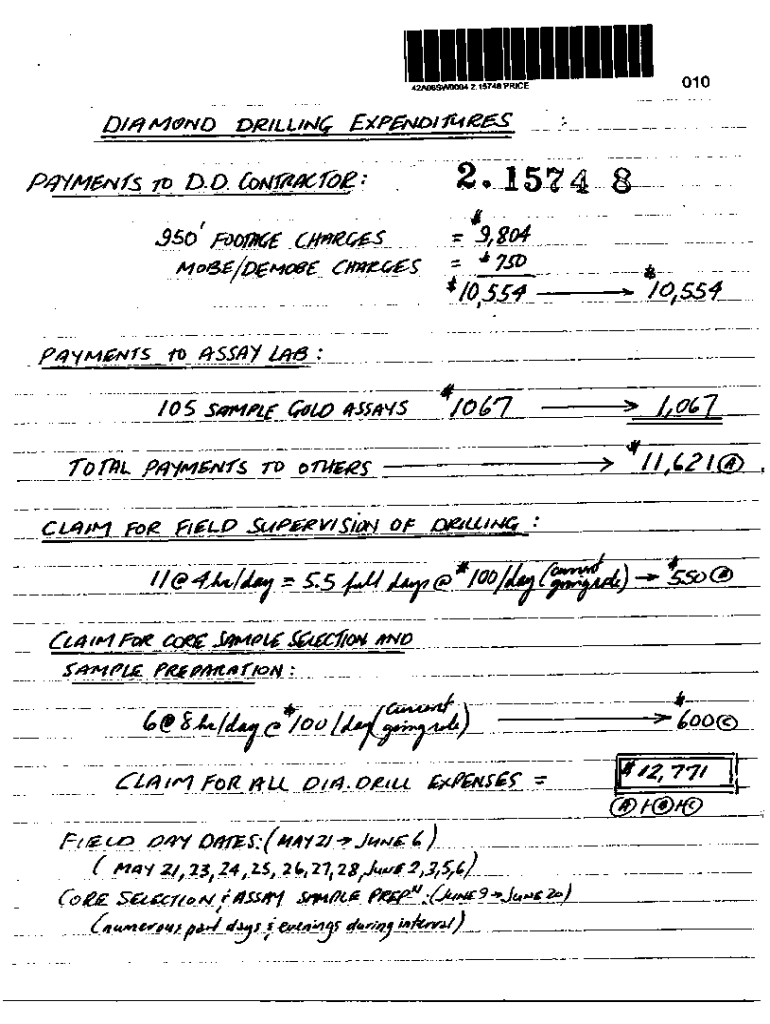 42A06SW0094 2.15748 PRICE
010
DIAMOND DRILLING EXPENDITURES :
PAYMENTS TO D.D. CONTRACTOR: 2.15748
950' FOOTAGE CHARGES = $9,804
MOBE/DEMOBE CHARGES = $750
$10,554 → $10,554
PAYMENTS TO ASSAY LAB:
105 SAMPLE GOLD ASSAYS $1067 → 1,067
TOTAL PAYMENTS TO OTHERS → $11,621 Ⓐ
CLAIM FOR FIELD SUPERVISION OF DRILLING:
11 @ 4hr/day = 5.5 full days @ $100/day (current going rate) → $550 Ⓑ
CLAIM FOR CORE SAMPLE SELECTION AND
SAMPLE PREPARATION:
6 @ 8 hr/day @ $100/day (current going rate) → $600 Ⓒ
CLAIM FOR ALL DIA. DRILL EXPENSES = $12,771
Ⓐ+Ⓑ+Ⓒ
FIELD DAY DATES: (MAY 21 → JUNE 6)
(MAY 21, 23, 24, 25, 26, 27, 28, JUNE 2, 3, 5, 6)
CORE SELECTION & ASSAY SAMPLE PREPN: (JUNE 9 → JUNE 20)
(numerous part days & evenings during interval)